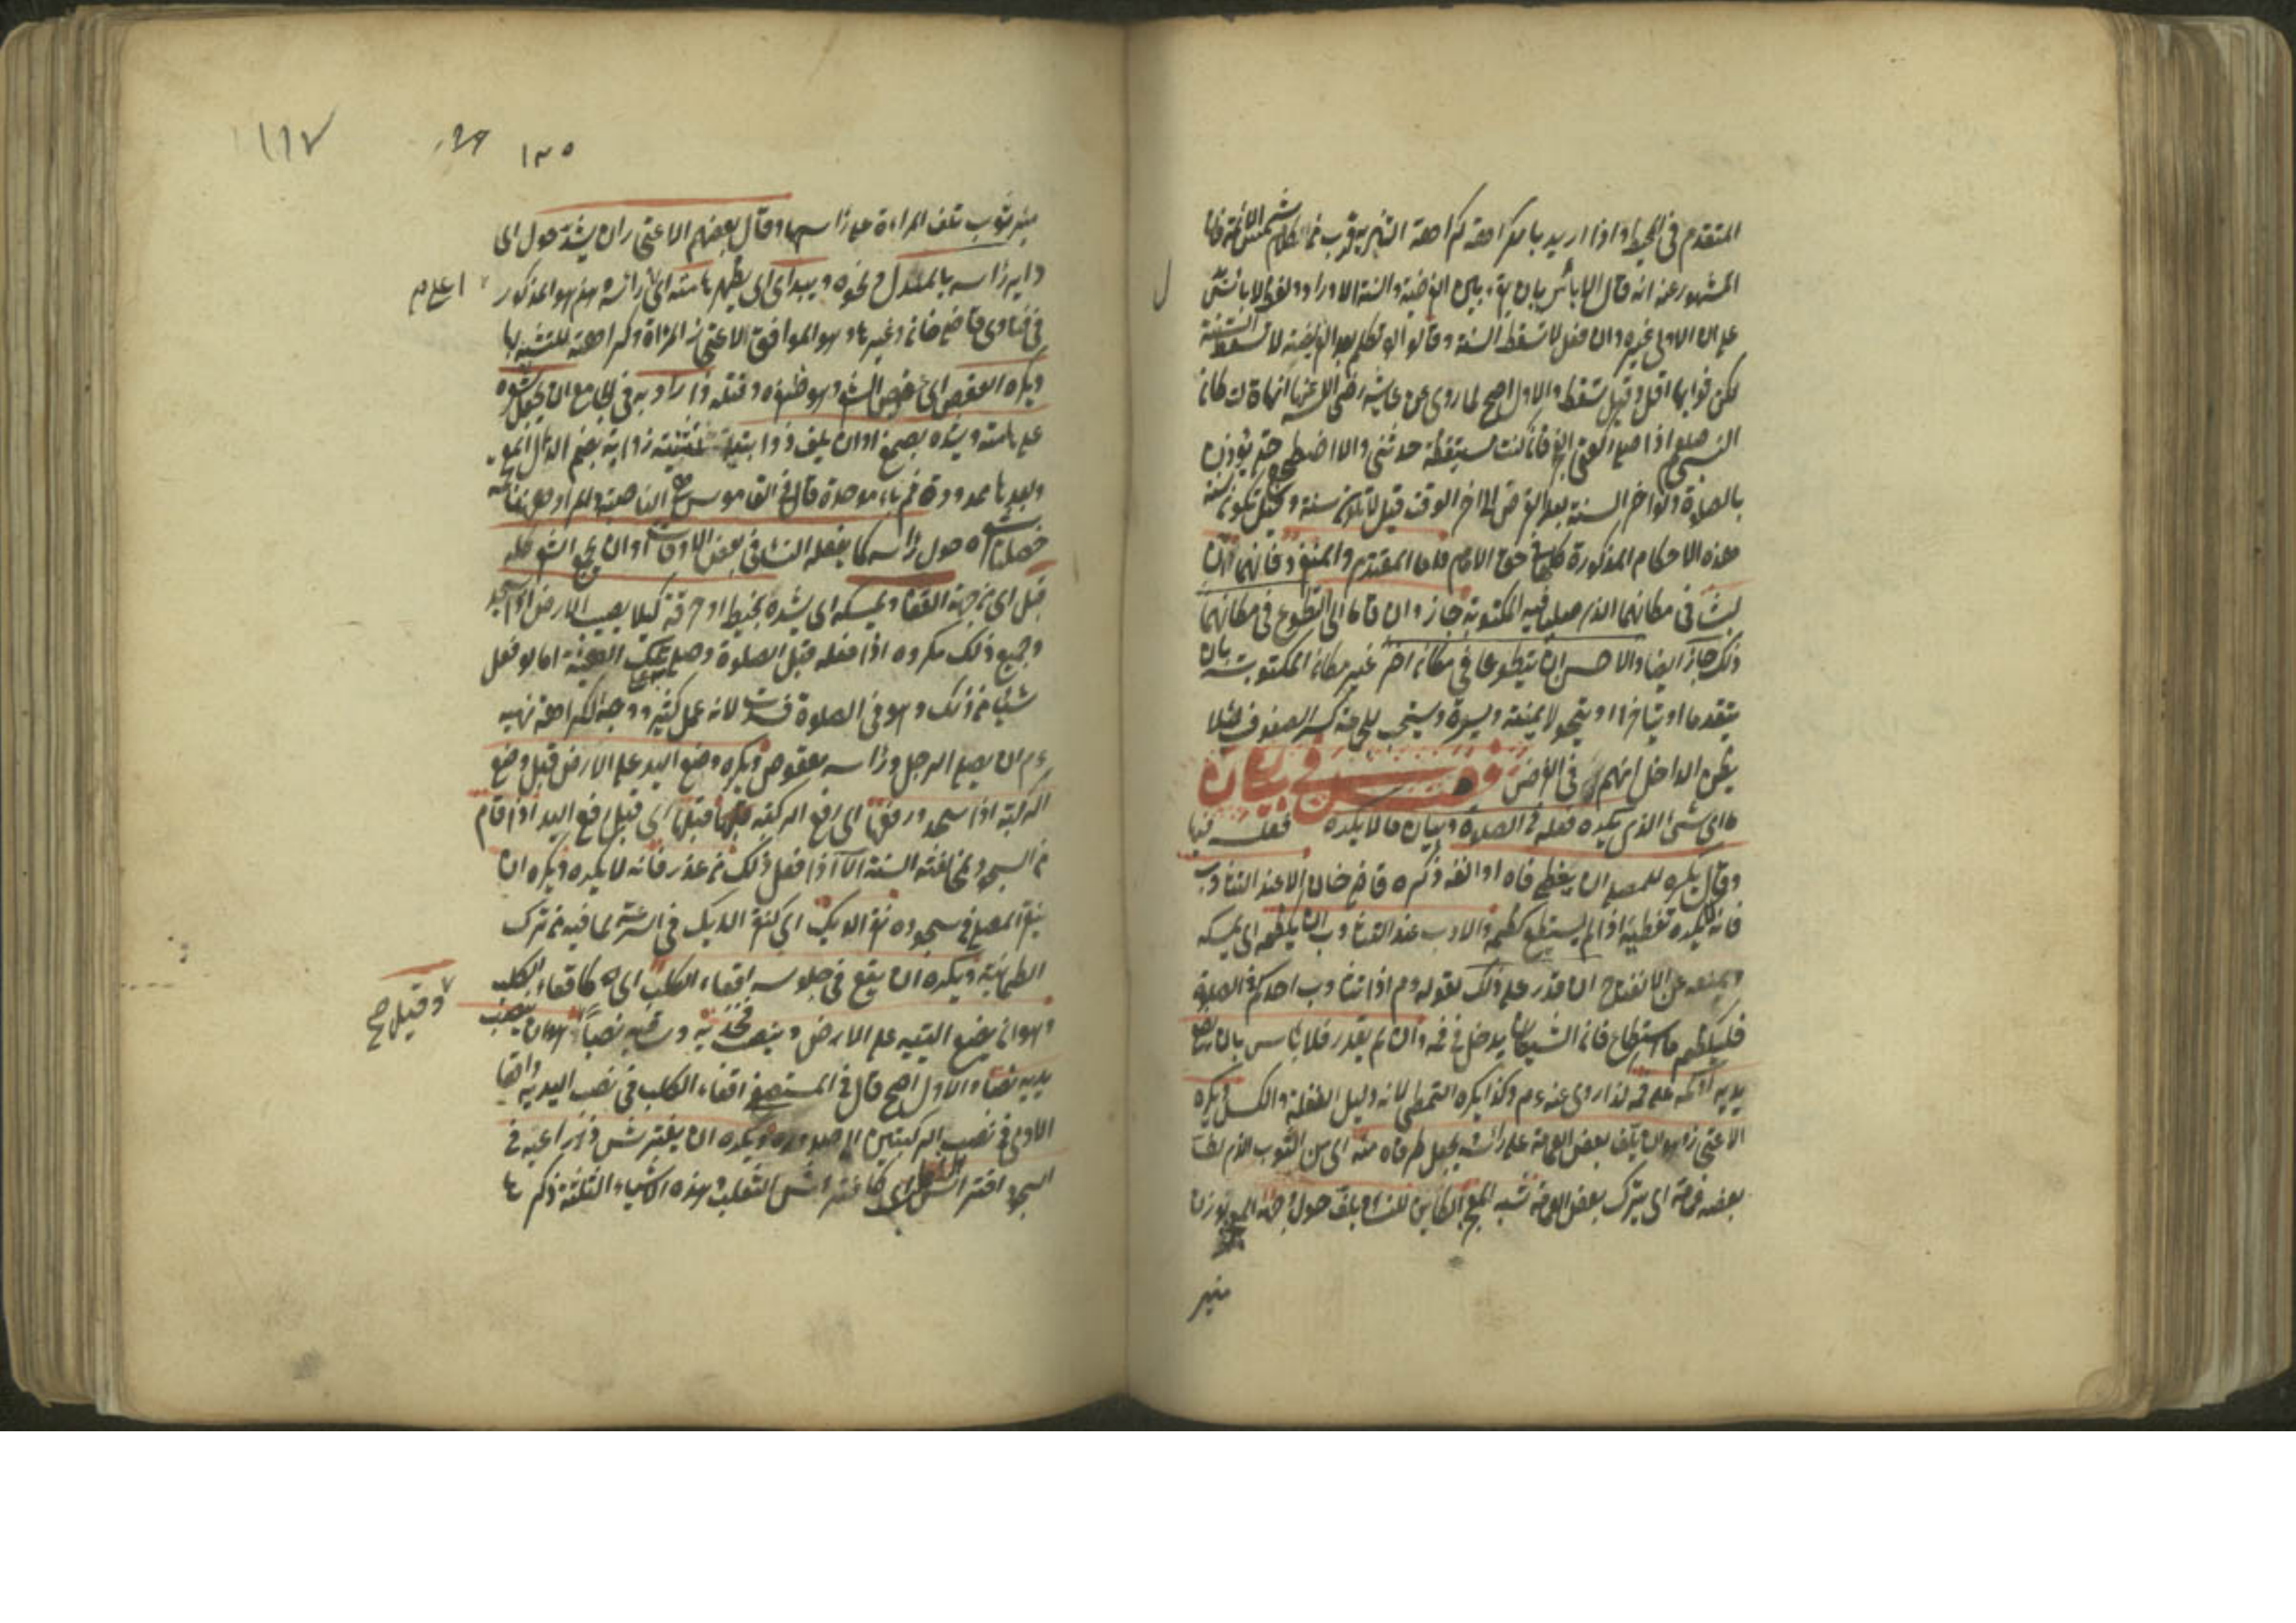 المتقدم في المحيط واذا اريد بالكراهة كراهة التنزيه قرب من كلام شمس الائمة فانا
المشهور عنه انه قال لا بأس بان يقرء بين الفريضة والسنة الاوراد ولفظ لا بأس
على ان الاولى غيره وان فعل لا تسقط السنة وقالوا لو تكلم بعد الفريضة لا تسقط السنة
لكن ثوابها اقل وقيل تسقط والاول اصح لما روى عن عايشة رضى الله عنها انها قالت كان
النبي صلعم اذا صلى ركعتي الفجر فان كنت مستيقظة حدثني والا اضطجع حتى يؤذن
بالصلوة ولو اخر السنة بعد الفرض الى اخر الوقت قيل لا تكون سنة وقيل تكون سنة
هذه الاحكام المذكورة كلها في حق الامام فاما المقتدي والمنفرد فانهما ان
لبثا في مكانهما الذي صليا فيه المكتوبة جاز وان قاما الى التطوع في مكانهما
ذلك جاز ايضا والاحسن ان يتطوعا في مكان اخر غير مكان المكتوبة بان
يتقدما او يتأخرا او يتحولا يمنة ويسرة ويستحب للجماعة كسر الصفوف لئلا
يظن الداخل انهم في الفرض فصل في بيان
ما اي شئ الذي يكره فعله في الصلوة وبيان ما لا يكره فعله فيها
وقال يكره للمصلي ان يغطي فاه او انفه ذكره قاضي خان الا عند التثاوب
فانه لا يكره تغطيته اذا لم يستطع كظمه والادب عند التثاوب ان يكظمه اي يمسكه
ويمنعه عن الانفتاح ان قدر على ذلك لقوله ءم اذا تثاوب احدكم في الصلوة
فليكظم ما استطاع فان الشيطان يدخل في فمه وان لم يقدر فلا بأس بان يضع
يديه او كمه على فمه لذا روى عنه ءم وكذا يكره التمطي لانه دليل الغفلة والكسل ويكره
الاعتجار وهو ان يلف بعض العمامة على رأسه ويجعل طرفاه منه اي من الثوب الذي لف
بعضه في صلوة اي يترك بعض العمامة شبه المعجر الكاين للنساء يلف حول وجهه المعجر بوزن
منبر
١٣٥
منبر ثوب تلف المراءة على رأسها وقال بعضهم الاعتجار ان يشد حول الى
داير رأسه بالمنديل ونحوه ويبدى اي يظهر هامته اي رأسه وهذا هو المذكور
اعلى م
في فتاوى قاضي خان وغيرها وهو الموافق لاعتجار المرأة وكراهته للتشبه بها
ويكره العقص اي عقص الشعر وهو ضفره وفتله واراد به في الجامع ان يجعل شعره
على هامته ويشده بصمغ او ان يلف ذوابتيه تثنية ذوابة بضم الذال المعجمة
وبعدها ممدودة ثم باء موحدة قال في القاموس الناصية والمراد هنا
خصلتا شعره حول رأسه كما يفعله النساء في بعض الاوقات او ان يجمع الشعر كله
قبل اي من جهة القفا ويمسكه اي يشده بخيط او خرقة كيلا يصيب الارض اذا سجد
وجميع ذلك مكروه اذا فعله قبل الصلوة وصلى على تلك الهيئة اما لو فعل
شيئا من ذلك وهو في الصلوة فسدت لانه عمل كثير ووجه الكراهة نهيه
ءم ان يصلي الرجل ورأسه معقوص ويكره وضع اليد على الارض قبل وضع
الركبة اذا سجد ورفعها اي رفع الركبة قبلها اي قبل رفع اليد اذا قام
من السجود لمخالفته السنة الا اذا فعل ذلك من عذر فانه لا يكره ويكره ان
ينقر المصلي في سجوده نقر الديك اي كنقر الديك في السرعة لما فيه من ترك
الطمانينة ويكره ان يقع في جلوسه اقعاء الكلب اي كاقعاء الكلب
وهو ان يضع اليتيه على الارض وينصب فخذيه وساقيه نصبا هو ان ينصب
وقيل صح
يديه نصبا والاول اصح قال في المستصفى اقعاء الكلب في نصب اليدين واقعاء
الادمى في نصب الركبتين الى صدره ويكره ان يفترش ذراعيه في
السجود افتراش الثعلب اي كافتراش الثعلب وهذه الاشياء الثلثة ذكرها